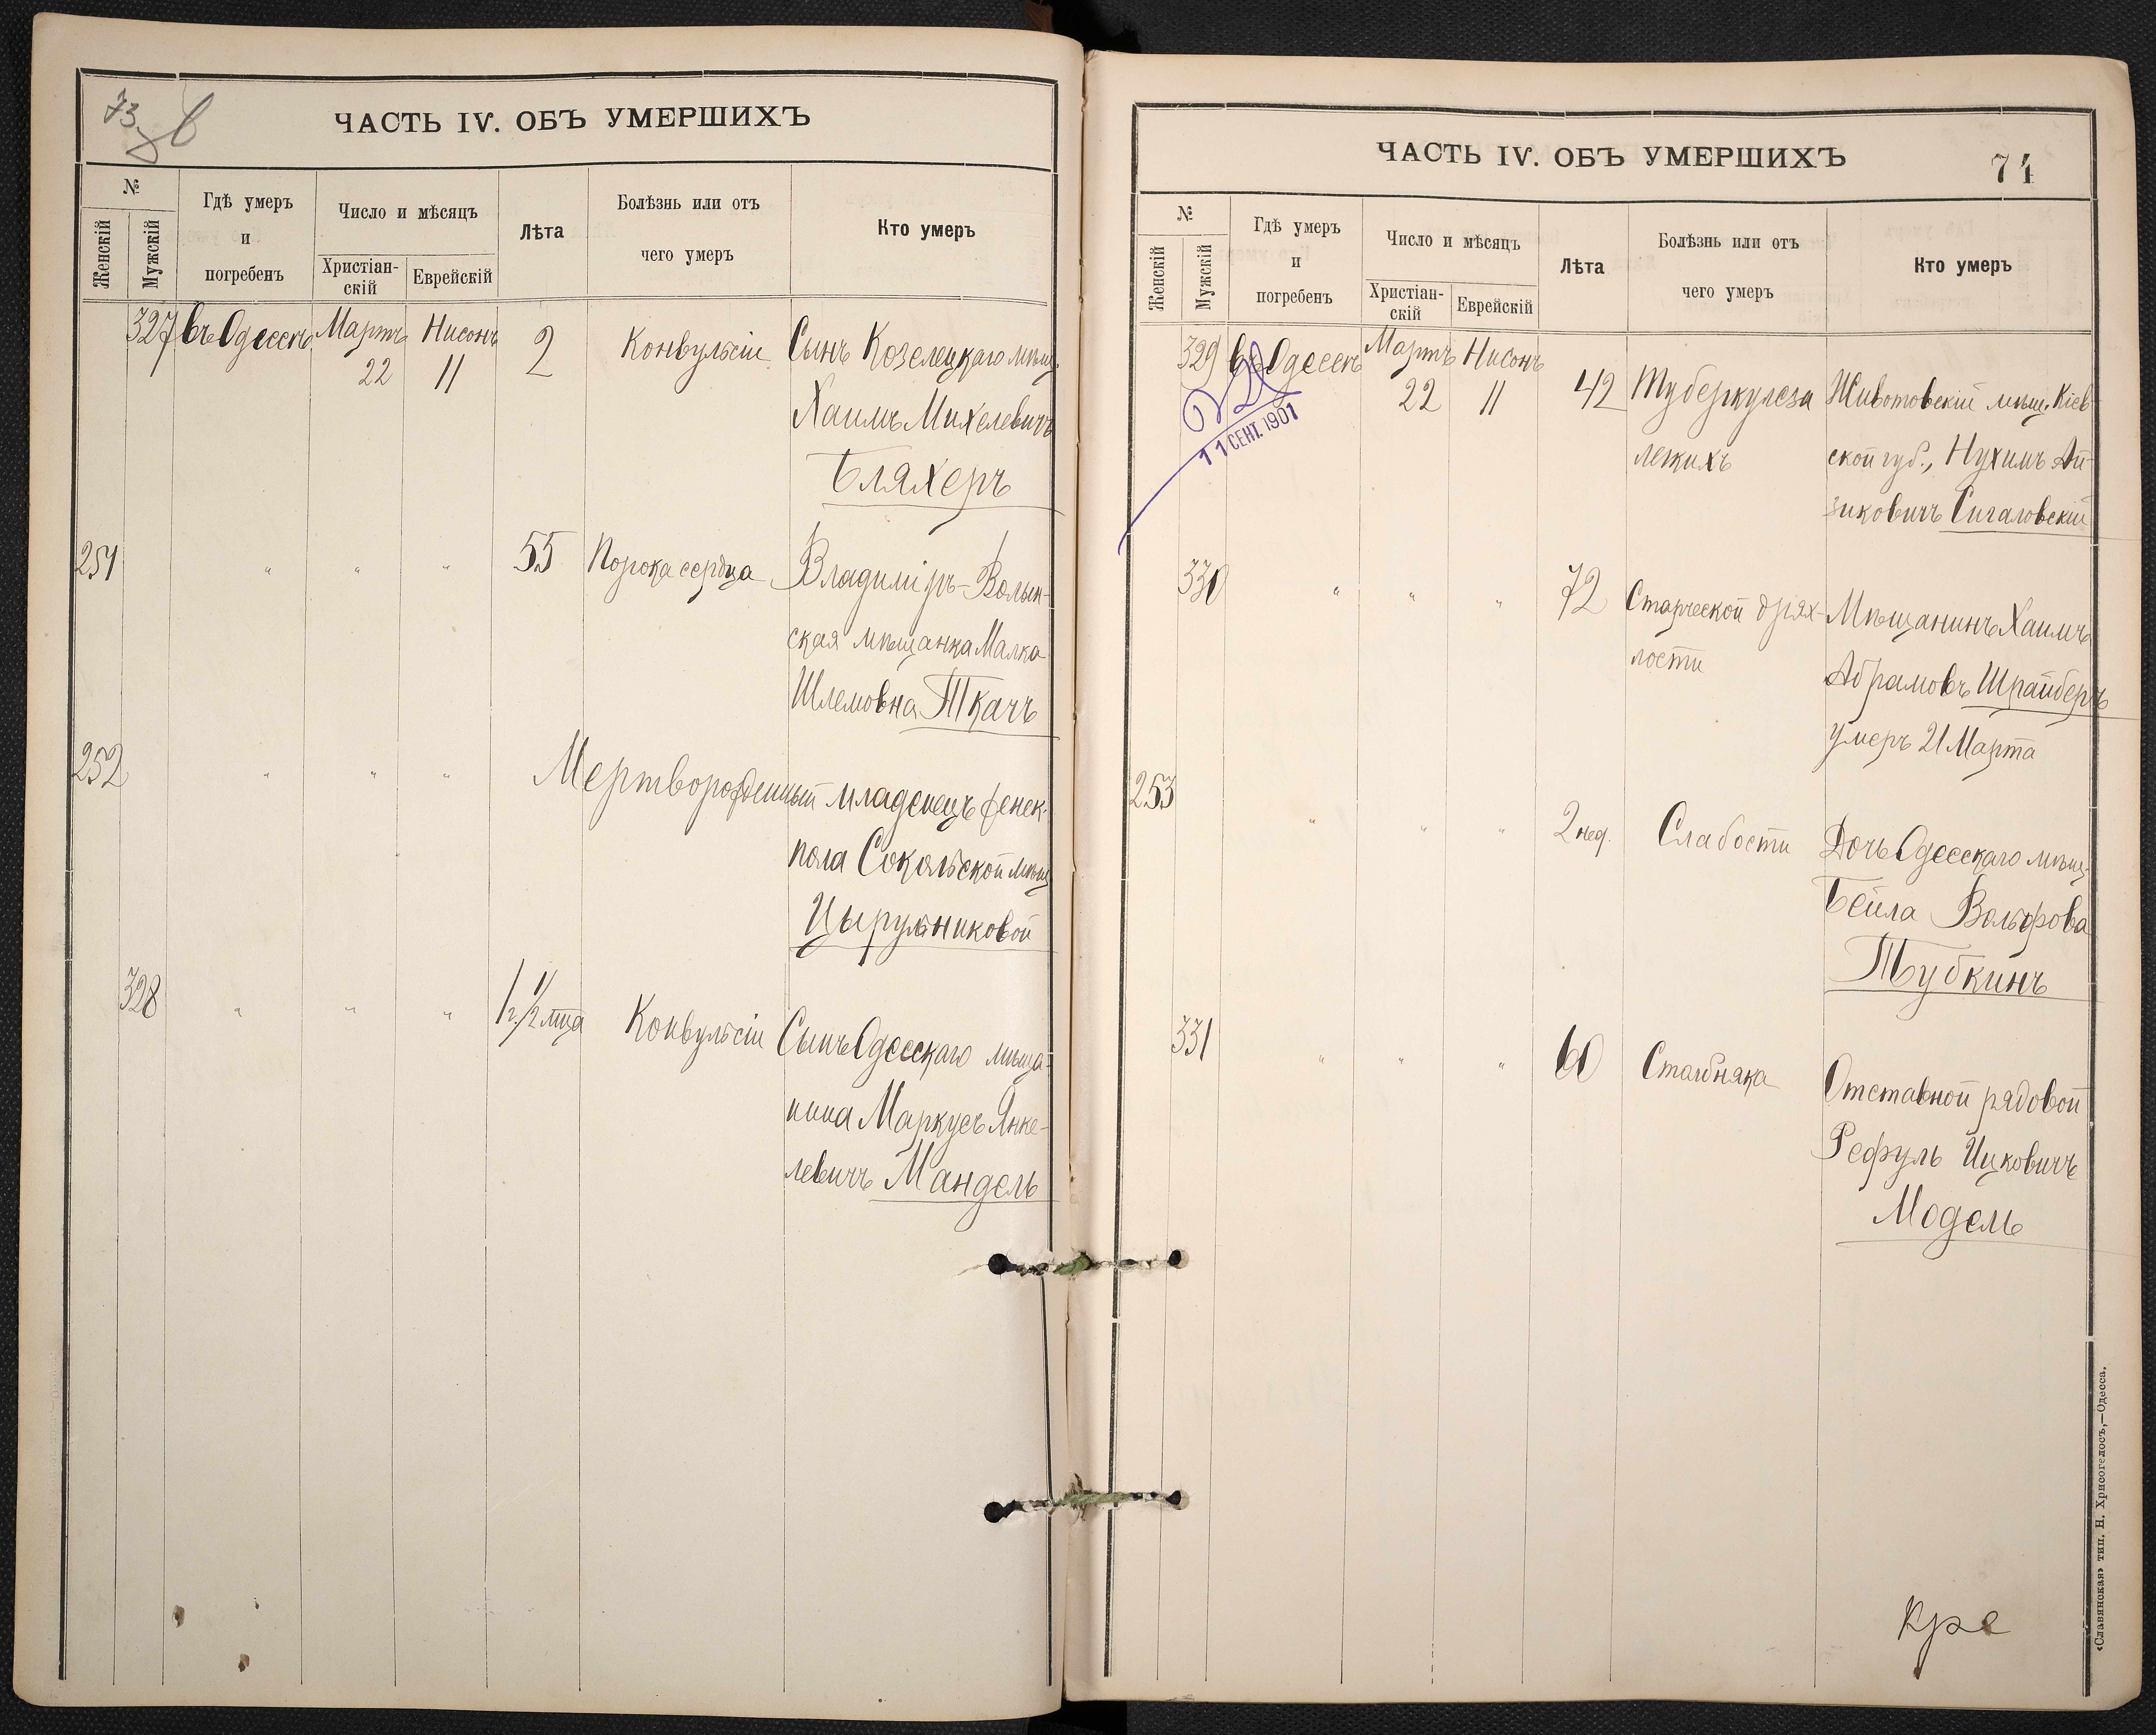 73
ЧАСТЬ IV. ОБЪ УМЕРШИХЪ
№
Женскій
Мужскій
Гдѣ умеръ
и
погребенъ
Число и мѣсяцъ
Христіан-
скій
Еврейскій
Лѣта
Болѣзнь или отъ
чего умеръ
Кто умеръ
327 въ Одессѣ Мартъ Нисонъ 2 Конвульсіи Сынъ Козелецкаго мѣщ.
22 11
Хаимъ Михелевичъ
Бляхеръ
251 " " " 55 Порока сердца Владиміръ-Волын-
ская мѣщанка Малка
Шлемовна Ткачъ
252 " " " Мертворожденный младенецъ женск.
пола Сокольской мѣщ.
Цырульниковой
328 " " " 1 г. 1/2 мца Конвульсіи Сынъ Одесскаго мѣща-
нина Маркусъ Янке-
левичъ Мандель
ЧАСТЬ IV. ОБЪ УМЕРШИХЪ
74
№
Женскій
Мужскій
Гдѣ умеръ
и
погребенъ
Число и мѣсяцъ
Христіан-
скій
Еврейскій
Лѣта
Болѣзнь или отъ
чего умеръ
Кто умеръ
329 въ Одессѣ Мартъ Нисонъ
22 11 42 Туберкулеза Животовскій мѣщ. Кіев-
легкихъ ской губ., Нухимъ Ай-
зиковичъ Сигаловскій
11 СЕНТ. 1901
330 " " " 72 Старческой дрях- Мѣщанинъ Хаимъ
лости Абрамовъ Шрайберъ
умеръ 21 Марта
253 " " " 2 нед. Слабости Дочь Одесскаго мѣщ.
Бейла Вольфова
Тубкинъ
331 " " " 60 Столбняка Отставной рядовой
Рефуль Ицковичъ
Модель
«Славянская» тип. Н. Хрисогелосъ,—Одесса.